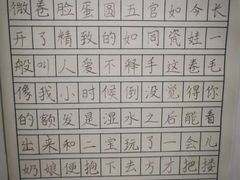 微卷脸蛋圆五宫如今长
开了精致的如同瓷娃一
般叫人爱不释手这卷毛
像我小时候倒没觉得你
的额发是湿水之后能看
出来和二宝玩了一会儿
奶娘便抱下去方才把搂